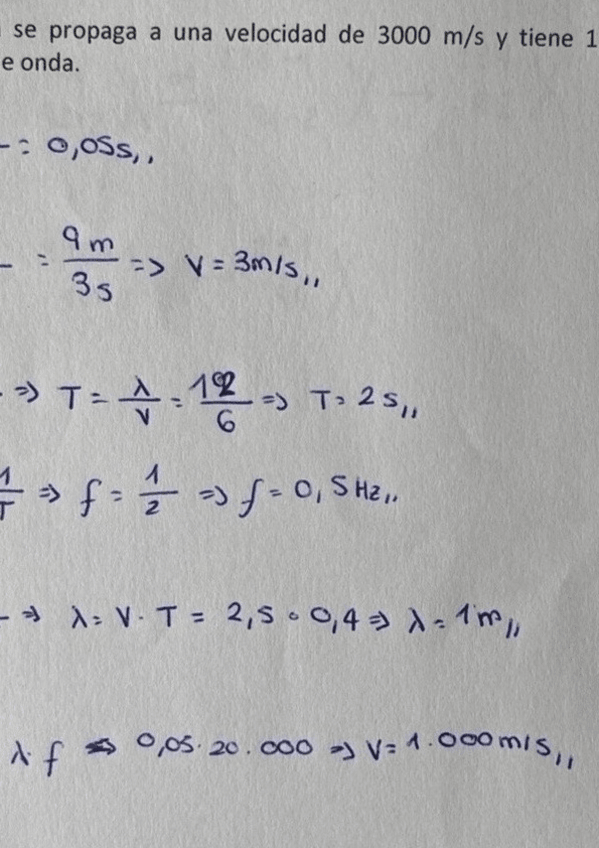 se propaga a una velocidad de 3000 m/s y tiene 1
e onda.
= 0,05s,,
= 9 m / 3 s => V = 3m/s,,
=> T = λ / V = 12 / 6 => T = 2 s,,
1 / T => f = 1 / 2 => f = 0,5 Hz,,
=> λ = V · T = 2,5 · 0,4 => λ = 1 m,,
λ · f => 0,05 · 20.000 => V = 1.000 m/s,,